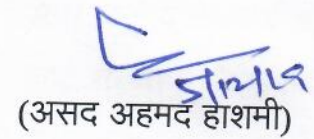 (असद अहमद हाशमी)